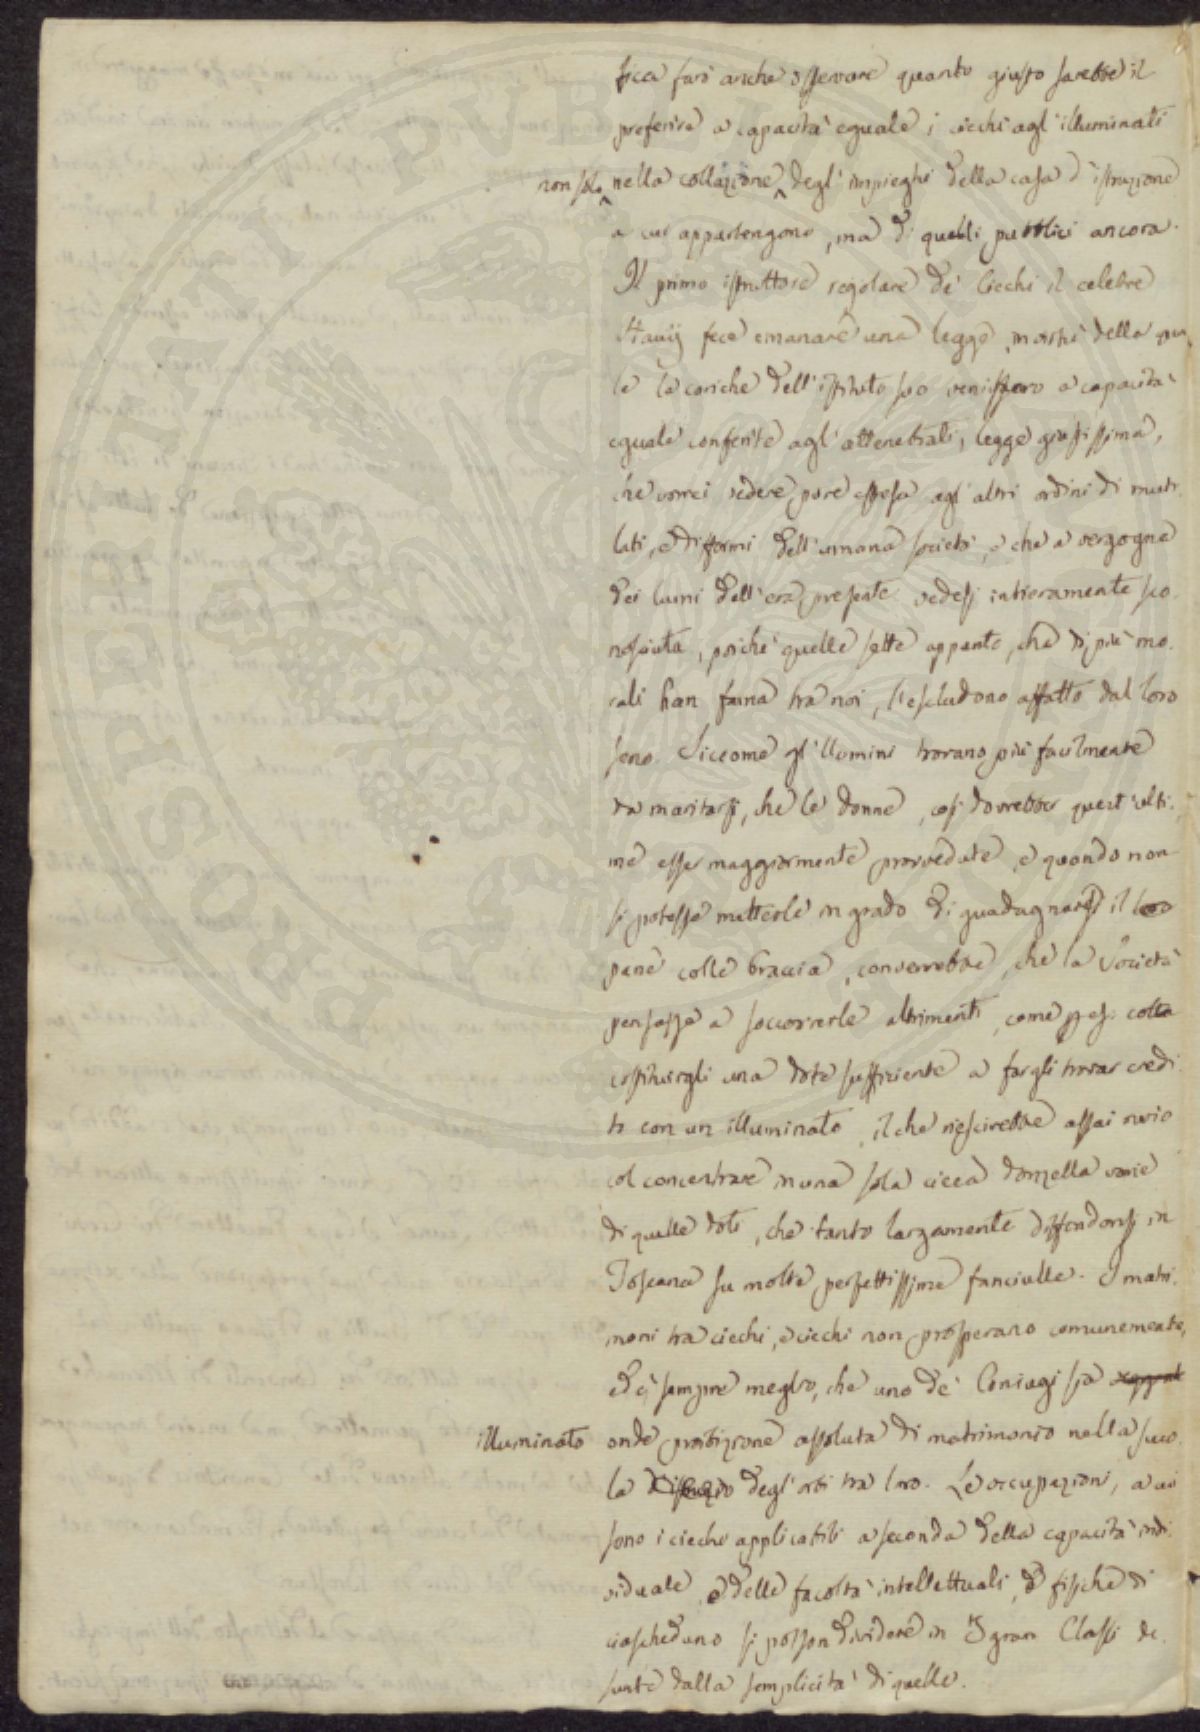 fica farò anche osservare quanto giusto sarebbe il
preferire a capacità eguale i ciechi agl'illuminati
non solo nella collazione degl'impieghi della casa d'istruzione
a cui appartengono, ma di quelli pubblici ancora.
Il primo istruttore regolare de' Ciechi il celebre
Haüy fece emanare una legge, mercè della qua
le le cariche dell'istituto suo venissero a capacità
eguale conferite agl'attenebrati, legge giustissima,
che vorrei vedere pure estesa agl'altri ordini di muti
lati, e difformi dell'umana società, e che a vergogna
dei lumi dell'era presente vedesi intieramente sco
nosciuta, poiché quelle sette appunto, che di più mo
rali han fama tra noi, li escludono affatto dal loro
seno. Siccome gl'Uomini trovano più facilmente
da maritarsi, che le donne, così dovrebber quest'ulti
me esser maggiormente provvedute, e quando non
si potesse metterle in grado di guadagnarsi il loro
pane colle braccia, converrebbe, che la Società
pensasse a soccorrerle altrimenti, come p. es. colla
costituirgli una dote sufficiente a fargli trovar credi
to con un illuminato, il che riescirebbe assai ovvio
col concentrare in una sola cieca donzella varie
di quelle doti, che tanto largamente diffondonsi in
Toscana su molte perfettissime fanciulle. I matri
moni tra ciechi, e ciechi non prosperano comunemente,
ed è sempre meglio, che uno de' Coniugi sia
illuminato onde proibizione assoluta di matrimonio nella scuo
la degl'orbi tra loro. Le occupazioni, a cui
sono i ciechi applicabili a seconda della capacità indi
viduale, e delle facoltà intellettuali, e fisiche di
ciascheduno si posson dividere in 3 gran Classi de
sunte dalla semplicità di quelle.